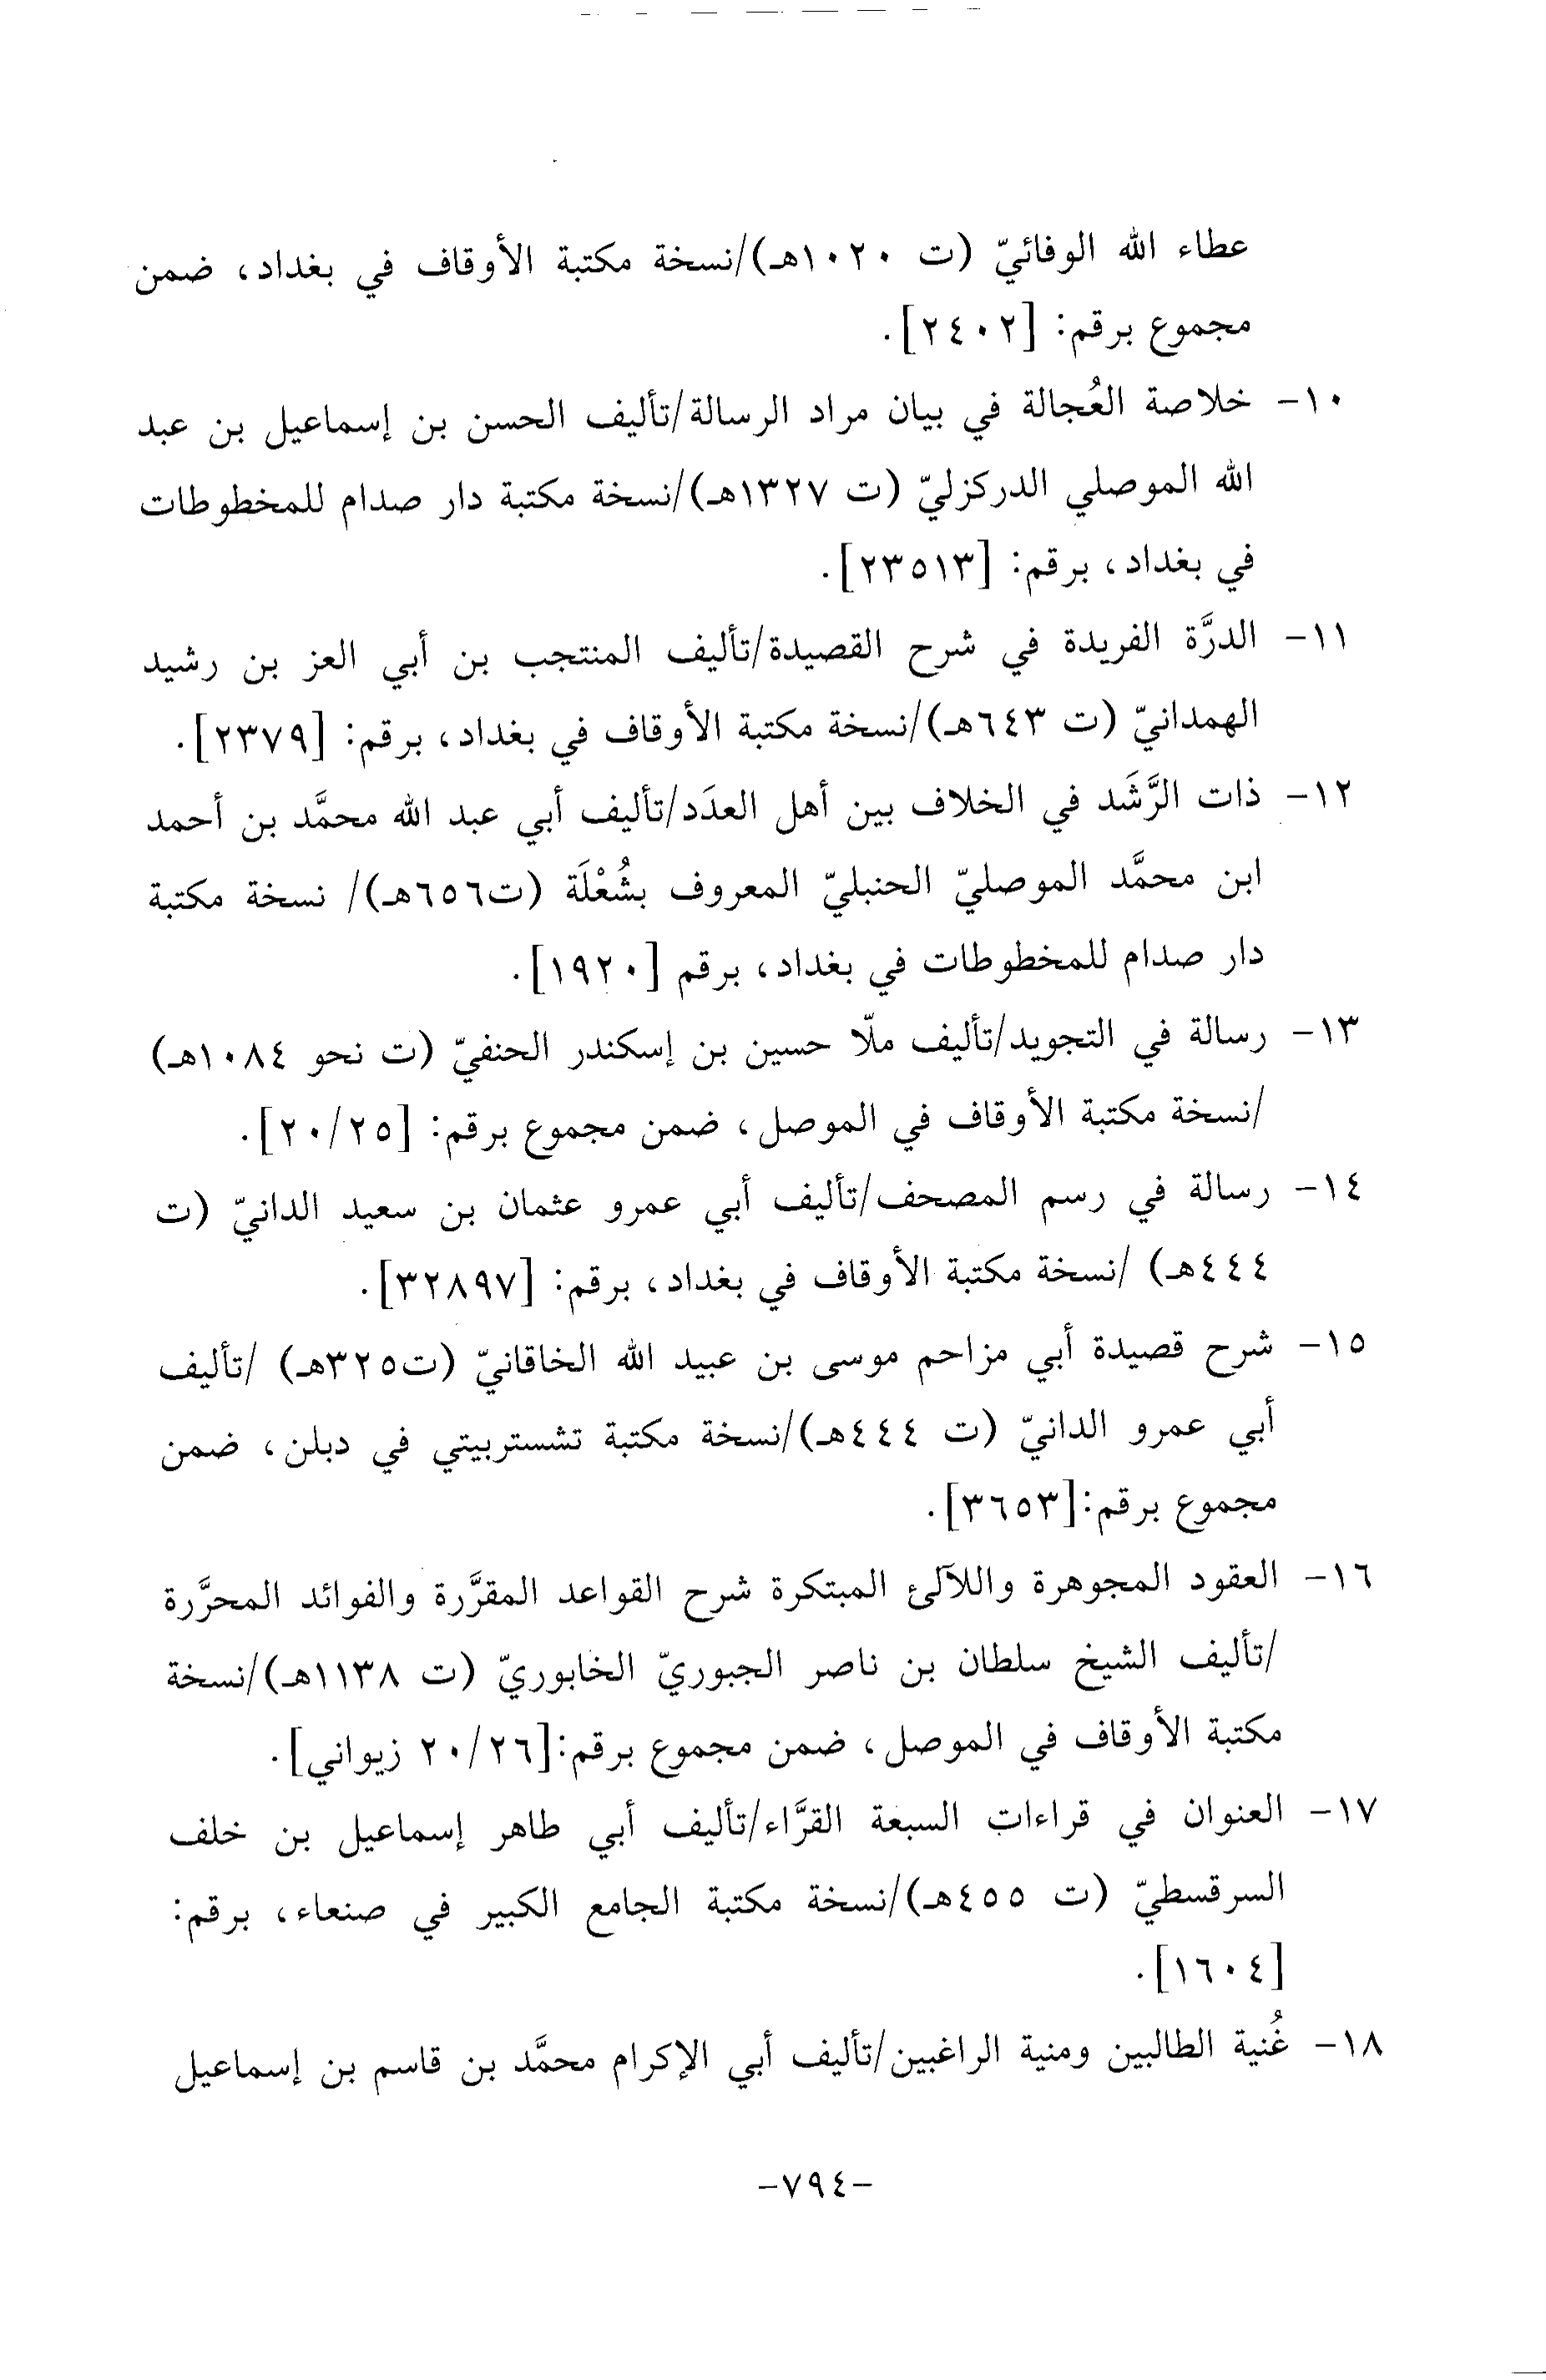 عطاء الله الوفائيّ (ت ١٠٢٠هـ)/نسخة مكتبة الأوقاف في بغداد، ضمن
مجموع برقم: [٢٤٠٢].
١٠- خلاصة العُجالة في بيان مراد الرسالة/تأليف الحسن بن إسماعيل بن عبد
الله الموصلي الدركزليّ (ت ١٣٢٧هـ)/نسخة مكتبة دار صدام للمخطوطات
في بغداد، برقم: [٢٣٥١٣].
١١- الدرَّة الفريدة في شرح القصيدة/تأليف المنتجب بن أبي العز بن رشيد
الهمدانيّ (ت ٦٤٣هـ)/نسخة مكتبة الأوقاف في بغداد، برقم: [٢٣٧٩].
١٢- ذات الرَّشَد في الخلاف بين أهل العدَد/تأليف أبي عبد الله محمَّد بن أحمد
ابن محمَّد الموصليّ الحنبليّ المعروف بشُعْلَة (ت٦٥٦هـ)/ نسخة مكتبة
دار صدام للمخطوطات في بغداد، برقم [١٩٢٠].
١٣- رسالة في التجويد/تأليف ملّا حسين بن إسكندر الحنفيّ (ت نحو ١٠٨٤هـ)
/نسخة مكتبة الأوقاف في الموصل، ضمن مجموع برقم: [٢٠/٢٥].
١٤- رسالة في رسم المصحف/تأليف أبي عمرو عثمان بن سعيد الدانيّ (ت
٤٤٤هـ) /نسخة مكتبة الأوقاف في بغداد، برقم: [٣٢٨٩٧].
١٥- شرح قصيدة أبي مزاحم موسى بن عبيد الله الخاقانيّ (ت٣٢٥هـ) /تأليف
أبي عمرو الدانيّ (ت ٤٤٤هـ)/نسخة مكتبة تشستربيتي في دبلن، ضمن
مجموع برقم:[٣٦٥٣].
١٦- العقود المجوهرة واللآلئ المبتكرة شرح القواعد المقرَّرة والفوائد المحرَّرة
/تأليف الشيخ سلطان بن ناصر الجبوريّ الخابوريّ (ت ١١٣٨هـ)/نسخة
مكتبة الأوقاف في الموصل، ضمن مجموع برقم:[٢٠/٢٦ زيواني].
١٧- العنوان في قراءات السبعة القرَّاء/تأليف أبي طاهر إسماعيل بن خلف
السرقسطيّ (ت ٤٥٥هـ)/نسخة مكتبة الجامع الكبير في صنعاء، برقم:
[١٦٠٤].
١٨- غُنية الطالبين ومنية الراغبين/تأليف أبي الإكرام محمَّد بن قاسم بن إسماعيل
-٧٩٤-